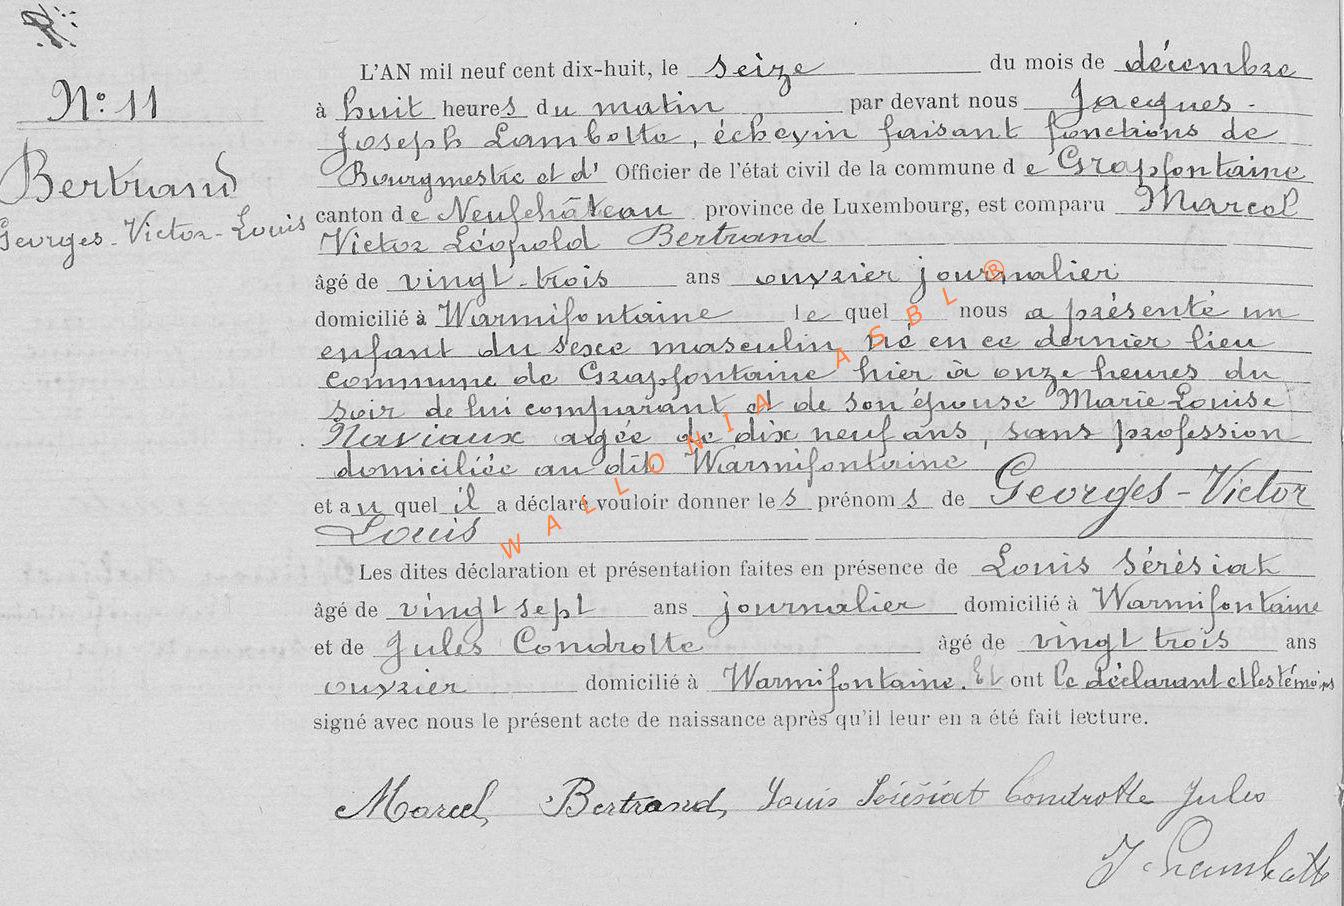 L'AN mil neuf cent dix-huit, le seize du mois de décembre
N° 11
à huit heures du matin par devant nous Jacques-
Joseph Lambotte, échevin faisant fonctions de
Bertrand
Bourgmestre et d' Officier de l'état civil de la commune de Grapfontaine
Georges-Victor-Louis
canton de Neufchâteau province de Luxembourg, est comparu Marcel
Victor Léopold Bertrand
âgé de vingt-trois ans ouvrier journalier
domicilié à Warmifontaine le quel nous a présenté un
enfant du sexe masculin, né en ce dernier lieu
commune de Grapfontaine hier à onze heures du
soir de lui comparant et de son épouse Marie Louise
Naviaux agée de dix neuf ans, sans profession
domiciliée au dit Warmifontaine
et au quel il a déclaré vouloir donner les prénoms de Georges-Victor
Louis
WALLONIA ASBL ®
Les dites déclaration et présentation faites en présence de Louis Sérésiat
âgé de vingt sept ans journalier domicilié à Warmifontaine
et de Jules Condrotte âgé de vingt trois ans
ouvrier domicilié à Warmifontaine. Et ont le déclarant et les témoins
signé avec nous le présent acte de naissance après qu'il leur en a été fait lecture.
Marcel Bertrand, Louis Sérésiat Condrotte Jules
J. Lambotte